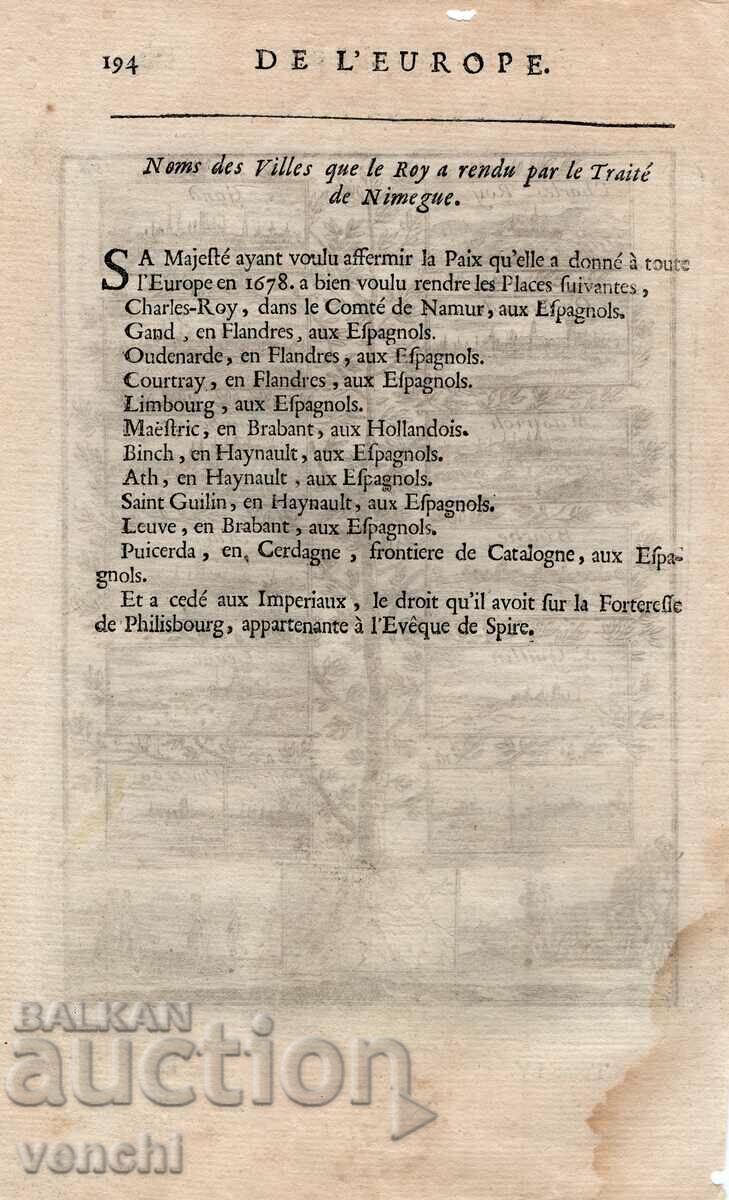 194 DE L'EUROPE.
Noms des Villes que le Roy a rendu par le Traité
de Nimegue.
SA Majeſté ayant voulu affermir la Paix qu'elle a donné à toute
l'Europe en 1678. a bien voulu rendre les Places ſuivantes,
Charles-Roy, dans le Comté de Namur, aux Eſpagnols.
Gand, en Flandres, aux Eſpagnols.
Oudenarde, en Flandres, aux Eſpagnols.
Courtray, en Flandres, aux Eſpagnols.
Limbourg, aux Eſpagnols.
Maëſtric, en Brabant, aux Hollandois.
Binch, en Haynault, aux Eſpagnols.
Ath, en Haynault, aux Eſpagnols.
Saint Guilin, en Haynault, aux Eſpagnols.
Leuve, en Brabant, aux Eſpagnols.
Puicerda, en Cerdagne, frontiere de Catalogne, aux Eſpa-
gnols.
Et a cedé aux Imperiaux, le droit qu'il avoit ſur la Fortereſſe
de Philisbourg, appartenante à l'Evêque de Spire.
BALKAN
auction
venchi